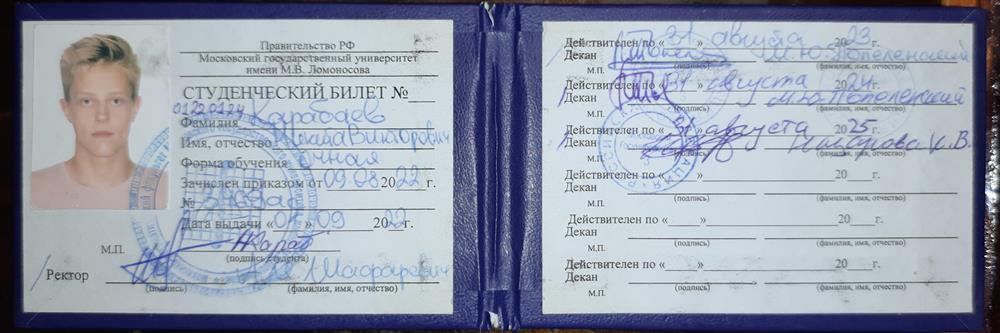 Правительство РФ
Московский государственный университет
имени М.В. Ломоносова
СТУДЕНЧЕСКИЙ БИЛЕТ №
Фамилия Карабаев
Имя, отчество Никита Викторович
Форма обучения очная
Зачислен приказом от 09.08 2022 г.
№
Дата выдачи « 01 » 09 2022 г.
М.П. (подпись студента)
Ректор
(подпись) (фамилия, имя, отчество)
Действителен по « 31 » августа 2023 г.
Декан
М.П. (подпись) (фамилия, имя, отчество)
Действителен по « 31 » августа 2024 г.
Декан
М.П. (подпись) (фамилия, имя, отчество)
Действителен по « 31 » августа 2025 г.
Декан
М.П. (подпись) (фамилия, имя, отчество)
Действителен по « » 20 г.
Декан
М.П. (подпись) (фамилия, имя, отчество)
Действителен по « » 20 г.
Декан
М.П. (подпись) (фамилия, имя, отчество)
Действителен по « » 20 г.
Декан
М.П. (подпись) (фамилия, имя, отчество)